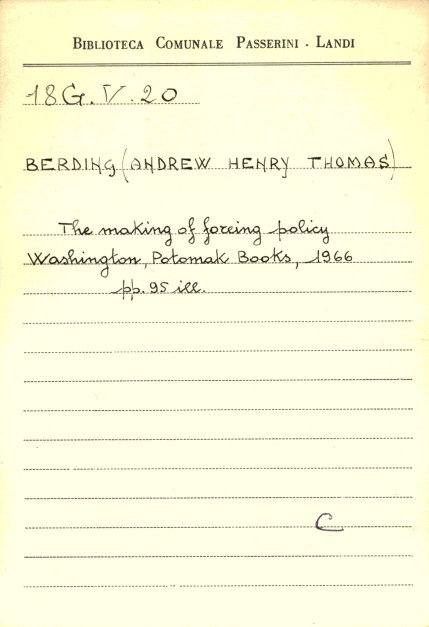 BIBLIOTECA COMUNALE PASSERINI - LANDI
18G.V.20
BERDING (ANDREW HENRY THOMAS)
The making of foreing policy
Washington, Potomak Books, 1966
pp. 95 ill.
C